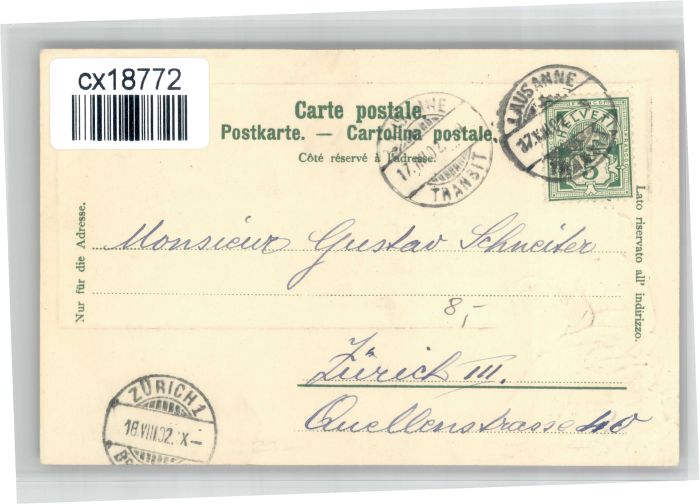 cx18772
Carte postale.
Postkarte. — Cartolina postale.
Côté réservé à l'adresse.
LAUSANNE
TRANSIT
17.VIII.02.
LAUSANNE
HELVETIA
5
Nur für die Adresse.
Lato riservato all' indirizzo.
Monsieur Gustav Schneiter
8,-
Zürich III.
Quellenstrasse 40
ZÜRICH 1
18.VIII.02. X-